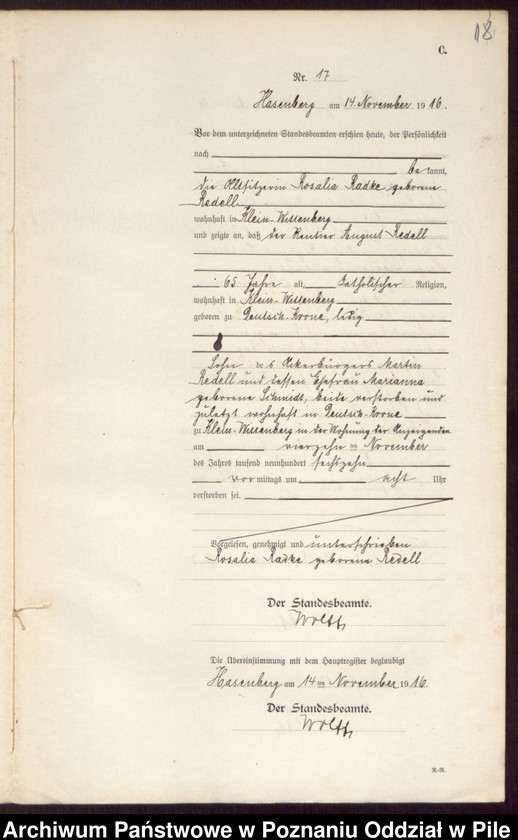 18
C.
Nr. 17
Hasenberg am 14. November 1916.
Vor dem unterzeichneten Standesbeamten erschien heute, der Persönlichkeit
nach
be kannt,
die Altsitzerin Rosalia Radke geborene
Redell
wohnhaft in Klein-Wittenberg
und zeigte an, daß der Rentier August Redell
65 Jahre alt, katholischer Religion,
wohnhaft in Klein-Wittenberg
geboren zu Deutsch-Krone, ledig
Sohn des Ackerbürgers Martin
Redell und dessen Ehefrau Marianna
geborene Schmidt, beide verstorben und
zuletzt wohnhaft in Deutsch-Krone
zu Klein-Wittenberg in der Wohnung der Anzeigenden
am vierzehn ten November
des Jahres tausend neunhundert sechszehn
vor mittags um acht Uhr
verstorben sei.
Vorgelesen, genehmigt und unterschrieben
Rosalia Radke geborene Redell
Der Standesbeamte.
Die Übereinstimmung mit dem Hauptregister beglaubigt
Hasenberg am 14 ten November 1916.
Der Standesbeamte.
R.-R.
Archiwum Państwowe w Poznaniu Oddział w Pile